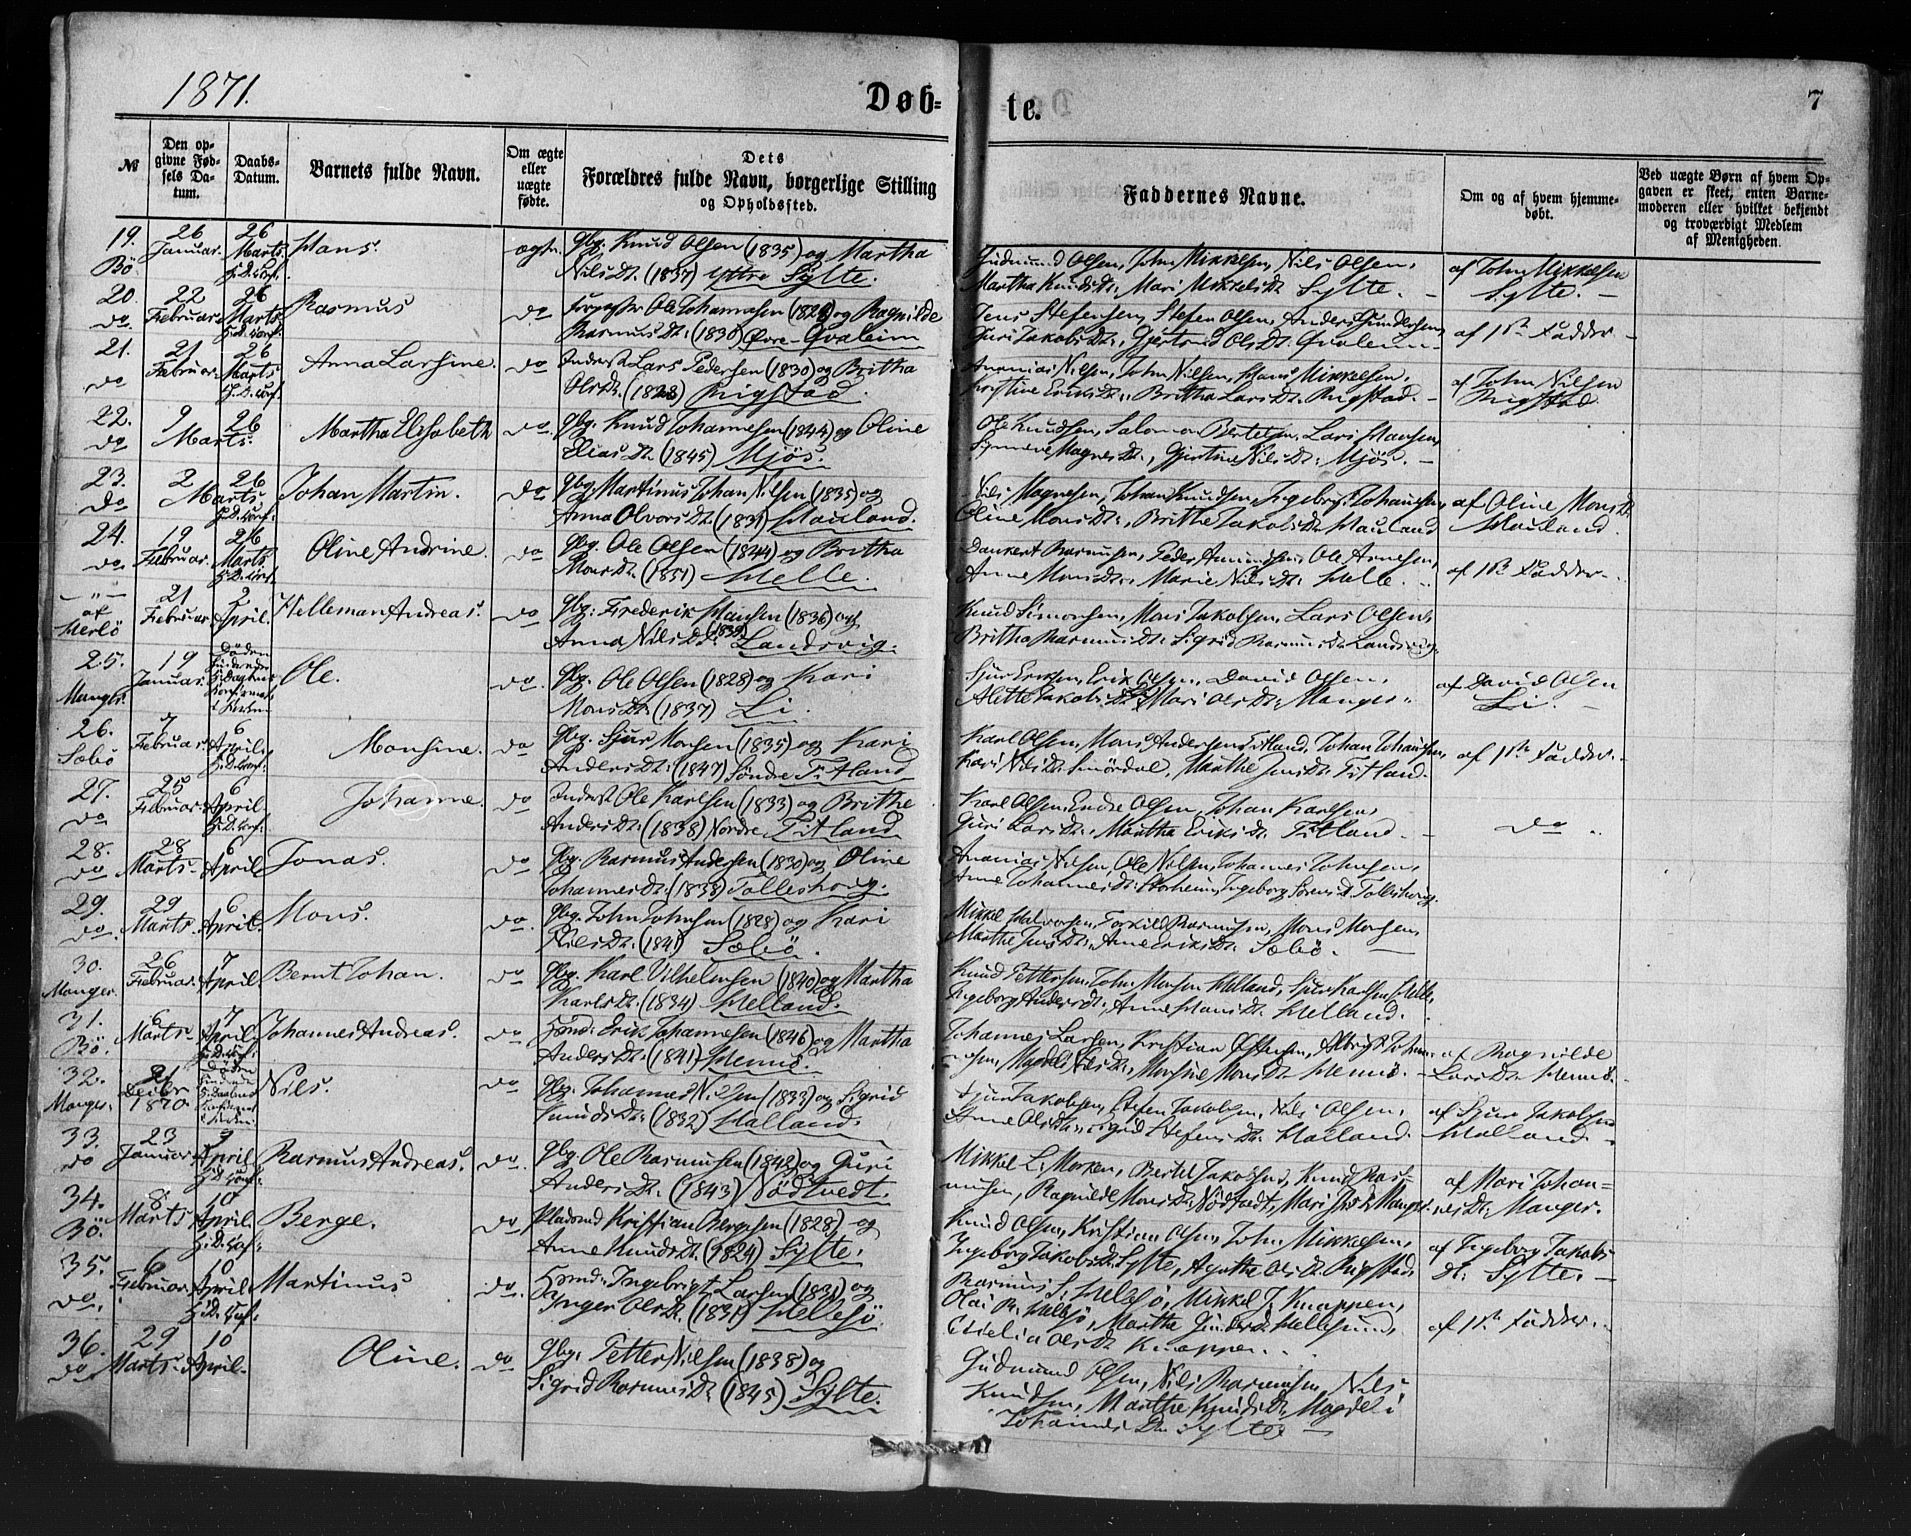 1871.
Døb-
te.
7
№
Den op-
givne Fød-
sels Da-
tum.
Daabs-
Datum.
Barnets fulde Navn.
Om ægte
eller
uægte
fødte.
Dets
Forældres fulde Navn, borgerlige Stilling
og Opholdssted.
Faddernes Navne.
Om og af hvem hjemme-
døbt.
Ved uægte Børn af hvem Op-
gaven er skeet, enten Barne-
moderen eller hvilket bekjendt
og troværdigt Medlem
af Menigheden.
19.
Bö.
26
Januar.
26
Marts.
Hans.
ægte
Gbg. Knud Olsen (1835) og Martha
Nilsdt. (1837) Yttre Sylte.
Gudmund Olsen, John Mikkelsen, Nils Olsen,
Martha Knudsdt., Mari Mikkelsdt. Sylte.
af John Mikkelsen
Sylte.
20.
do
22
Februar.
26
Marts
Rasmus
do
Ole Johannesen og Ragnilde
Rasmusdt. Øvre-Qvalem
Jens Stefensen, Stefen Olsen, Anders Gundersen,
Guri Jakobsdt., Gjertrud Olsdt. Qvalem
af 1ste Fadder.
21.
do
21
Februar.
26
Marts
Anna Larsine.
do
Inderst Lars Pedersen (1830) og Britha
Olsdt. Rigstad.
Ananias Nilsen, John Nilsen, Hans Mikkelsen,
Eriksdt., Britha Larsdt. Rigstad.
af John Nilsen
Rigstad
22.
do
9
Marts.
26
Martha Elisabeth
do
Gbg. Knud Johannesen (1844) og Oline
Eliasdt. (1845) Mjös.
Ole Knudsen, Salomon Bertelsen, Lars Hansen,
Magnesdt., Gjertine Nilsdt. Mjös.
23.
do
2
Marts.
26
Johan Martin.
do
Gbg. Martinus Johan Nilsen (1835) og
Anna Olvorsdt. Hauland.
Nils Magnesen, Johan Knudsen, Ingeborg Johannesen,
Oline Monsdt., Brithe Jakobsdt. Hauland
af Oline Monsdt.
Hauland.
24.
do
19
Februar.
26
Marts
Oline Andrine.
do
Gbg. Ole Olsen (1844) og Britha
Monsdt. (1851) Helle.
Dankert Rasmusen, Peder Amundsen, Ole Arnesen,
Anne Monsdt., Marie Nilsdt. Helle.
af 1ste Fadder.
— " —
af
Herlö
21
Februar.
2
April.
Helleman Andreas.
do
Gbg. Frederik Hansen (1836) og
Anna Nilsdt. Landsvig.
Knud Simonsen, Mons Jakobsen, Lars Olsen,
Britha Rasmusdt., Sigrid Rasmusdt. Landsvig.
25.
Manger.
19
Januar.
Ole.
do.
Gbg. Ole Olsen (1828) og Kari
Monsdt. (1837) Li.
Sjur Eriksen, Erik Olsen, David Olsen,
Alette Jakobsdt. Mari Olsdt. Manger.
af David Olsen
Li.
26.
Sæbö
7
Februar
6
April.
Monsine.
do
Gbg. Sjur Monsen (1835) og Kari
Andersdt. (1847) Söndre Titland
Karl Olsen, Mons Andersen Titland, Johan Johannesen,
Kari Nilsdt. Smördal, Marthe Jensdt. Titland.
af 1ste Fadder.
27.
do
25
Februar.
6
April.
Johanne.
do
Inderst Ole Karlsen (1833) og Brithe
Andersdt. (1838) Nordre Titland
Karl Olsen, Endre Olsen, Johan Karlsen,
Guri Larsdt., Martha Eriksdt. Titland.
do
28.
do
28
Marts.
6
April
Jonas.
do
Gbg. Rasmus Andersen (1830) og Oline
Johannesdt. (1838) Tolleshoug.
Ananias Nilsen, Ole Nilsen, Johannes Johnsen,
Anne Johannesdt. Storheim, Ingeborg Sørensdt. Tolleshoug.
29.
do.
29
Marts.
6
April.
Mons.
do.
Gbg. John Johnsen (1828) og Kari
Nilsdt. Sæbö.
Mikkel Halvorsen, Torkild Rasmusen, Mons Monsen,
Marthe Jensdt., Anne Eriksdt. Sæbö.
30.
Manger.
26
Februar.
7
April
Bernt Johan.
do
Gbg. Karl Vilhelmsen (1840) og Martha
Karlsdt. (1834) Helland.
Knud Pettersen, John Monsen Helland, Sjur Karlsen Helle,
Ingeborg Andersdt., Anne Hansdt. Helland.
31.
Bö.
6
Marts.
7
April.
Johannes Andreas.
do
Erik Johannesen (1846) og Martha
Andersdt. (1841) Hennö.
Johannes Larsen, Kristian Johan-
nesen, Magdeli Nilsdt., Monsine Monsdt. Hennö.
af Ragnilde
Larsdt. Hennö.
32.
Manger.
21
Decbr
1870
Nils.
do
Gbg. Johannes Nilsen (1833) og Sigrid
Knudsdt. (1832) Halland.
Sjur Jakobsen, Stefen Jakobsen, Nils Olsen,
Anne Olsdt., Sigrid Stefensdt. Halland.
af Sjur Jakobsen
Halland.
33.
do
23
Januar.
9
April
Rasmus Andreas.
do.
Gbg. Ole Rasmusen (1842) og Guri
Andersdt. (1843) Nödtvedt.
Mikkel L. Monsen, Bertel Jakobsen, Knud Ras-
musen, Ragnilde Monsdt. Nödtvedt, Mari Manger.
af Mari Johan-
nesdt. Manger.
34.
Bö.
8
Marts.
10
April.
Berge.
do.
Pladsmd Kristian Bergesen (1828) og
Anne Knudsdt. (1824) Sylte.
Knud Olsen, Kristian Olsen, John Mikkelsen,
Ingeborg Jakobsdt. Sylte, Agathe Olsdt. Rigstad.
af Ingeborg Jakobs
dt. Sylte.
35.
do.
6
Februar.
10
April.
Martinus
do.
Ingebrigt Larsen og
Inger Olsdt. Hellesö.
Rasmus S. Hellesö, Mikkel J. Knappen,
Olai R. Hellesö, Martha Hellesund,
Olsdt. Knappen.
af 1ste Fadder.
36.
do
29
Marts.
10
April.
Oline.
do
Gbg. Petter Nilsen (1838) og
Sigrid Rasmusdt. (1845) Sylte.
Gudmund Olsen, Nils Rasmusen, Nils
Knudsen, Marthe Knudsdt., Magdeli
Johannesdt. Sylte.